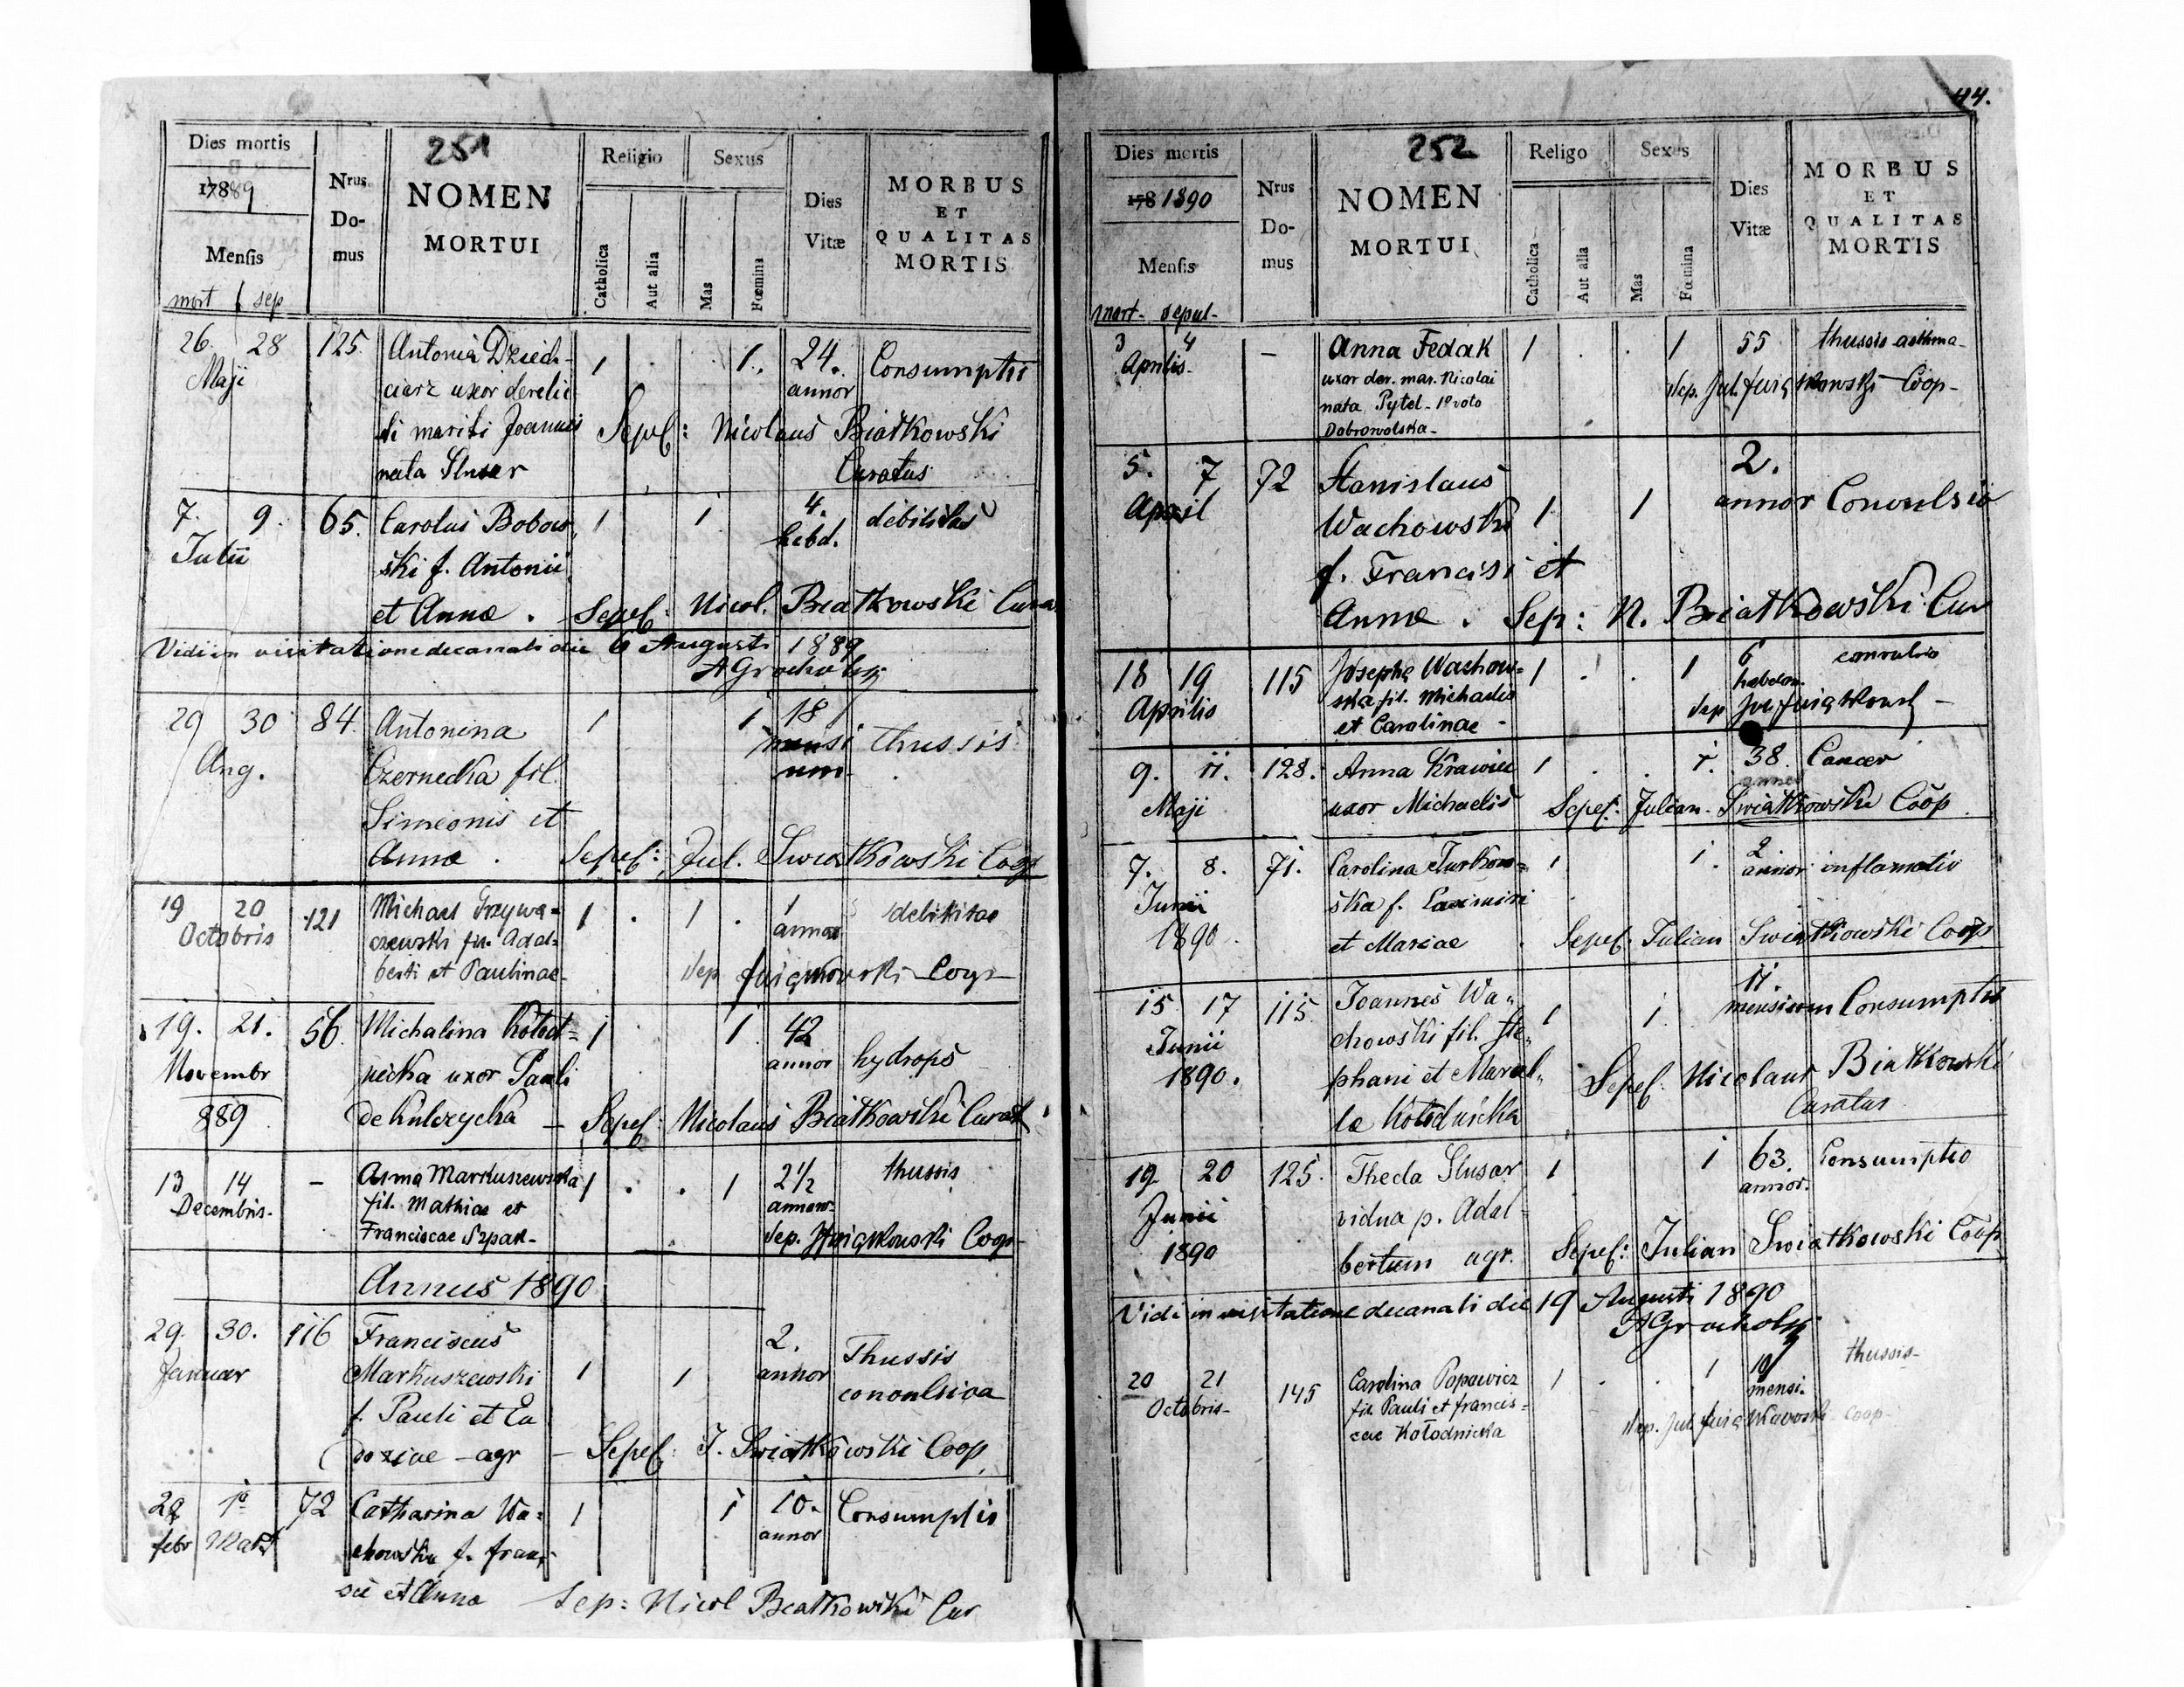 251
Dies mortis
17889.
Mensis
mort sep
Nrus
Do-
mus
NOMEN
MORTUI
Religio
Catholica
Aut alia
Sexus
Mas
Fœmina
Dies
Vitæ
MORBUS
ET
QUALITAS
MORTIS
26. 28 125. Antonia Dzied- 1 1. 24. Consumptio
Maji ciarz uxor derelic annor
ti mariti Joannis Sepel: Nicolaus Białkowski
nata Slusar Curatus
7. 9. 65. Carolus Bobow 1 1 4. debilitas
Julii ski f. Antonii hebd.
et Annæ . Sepel. Nicol. Białkowski Cura
Vidi in visitatione decanali die 6 Augusti 1889
AGrocholsky
29 30 84. Antonina 1 1. 18 thussis
Aug. Czernecka fil. mensi
Simeonis et um
Annæ . Sepel: Jul. Swiatkowski Coop
19 20 121 Michael Grzywa- 1 . 1 . 1 debilitas
Octobris czewski fil. Adal- annor
berti et Paulinae- sep Swiątkowski Coop-
19. 21. 56. Michalina Kołod- 1 1 42 hydrops
Novembr nicka uxor Pauli annor
889 de Kulczycka - Sepel: Nicolaus Białkowski Curat
13 14 - Anna Markuszewska 1 . . 1 2½ thussis
Decembris- fil. Mathiae et annor-
Franciscae Szpak- sep. Swiątkowski Coop-
Annus 1890
29. 30. 116 Franciscus 2. Thussis
Januar Markuszewski 1 1 annor convulsiva
f. Pauli et Eu
doxiae - agr - Sepel: J. Swiatkowski Coop
28 1a 72 Catharina Wa- 1 1 10. Consumptio
febr Mart chowska f. Franci- annor
sci et Anna Sep: Nicol Białkowski Cur
44.
252
Dies mortis
178 1890
Mensis
mort- sepul-
Nrus
Do-
mus
NOMEN
MORTUI
Religo
Catholica
Aut alia
Sexus
Mas
Fœmina
Dies
Vitæ
MORBUS
ET
QUALITAS
MORTIS
3 4 - Anna Fedak 1 . . 1 55 thussis asthma-
Aprilis- uxor der. mar. Nicolai sep. Jul. Swiątkowski Coop-
nata Pytel- 1º voto
Dobrowolska-
5. 7 72 Stanislaus 2.
April Wachowski 1 1 annor Convulsio
f. Francisi et
Annæ . Sep: N. Białkowski Cur
18 19 115 Josepha Wachow- 1 . . 1 6 convulsio
Aprilis ska fil. Michaelis hebdom.
et Carolinae - sep Jul Swiątkowsk -
9. 11. 128. Anna Krawiec 1 . . 1. 38. Cancer
Maji uxor Michaelis annor
Sepel: Julian Swiatkowski Coop.
7. 8. 71. Carolina Turkow- 1 1. 2 inflamatio
Junii ska f. Casimiri annor
1890. et Mariae . Sepel. Julian Swiatkowski Coop
15 17 115. Joannes Wa- 1 1. 11. Consumptio
Junii chowski fil. Ste- mensium
1890. phani et Marcel- Sepel: Nicolaus Białkowski
læ Kołodnicka Curatus
19 20 125. Thecla Slusar 1 1 63. Consumptio
Junii vidua p. Adal- annor.
1890 bertum agr. Sepel: Julian Swiatkowski Coop
Vidi in visitatione decanali die 19 Augusti 1890
AGrocholsky
20 21 145 Carolina Popowicz 1 . . 1 10 thussis-
Octobris- fil. Pauli et Francis- mensi.
cae Kołodnicka sep. Jul. Swiątkowski Coop-